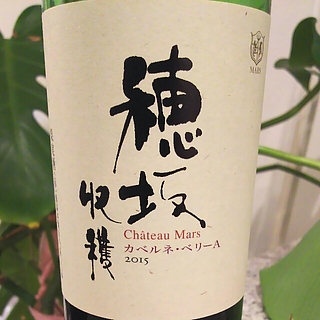 穂坂
収穫
MARS
Château Mars
カベルネ・ベリーA
2015